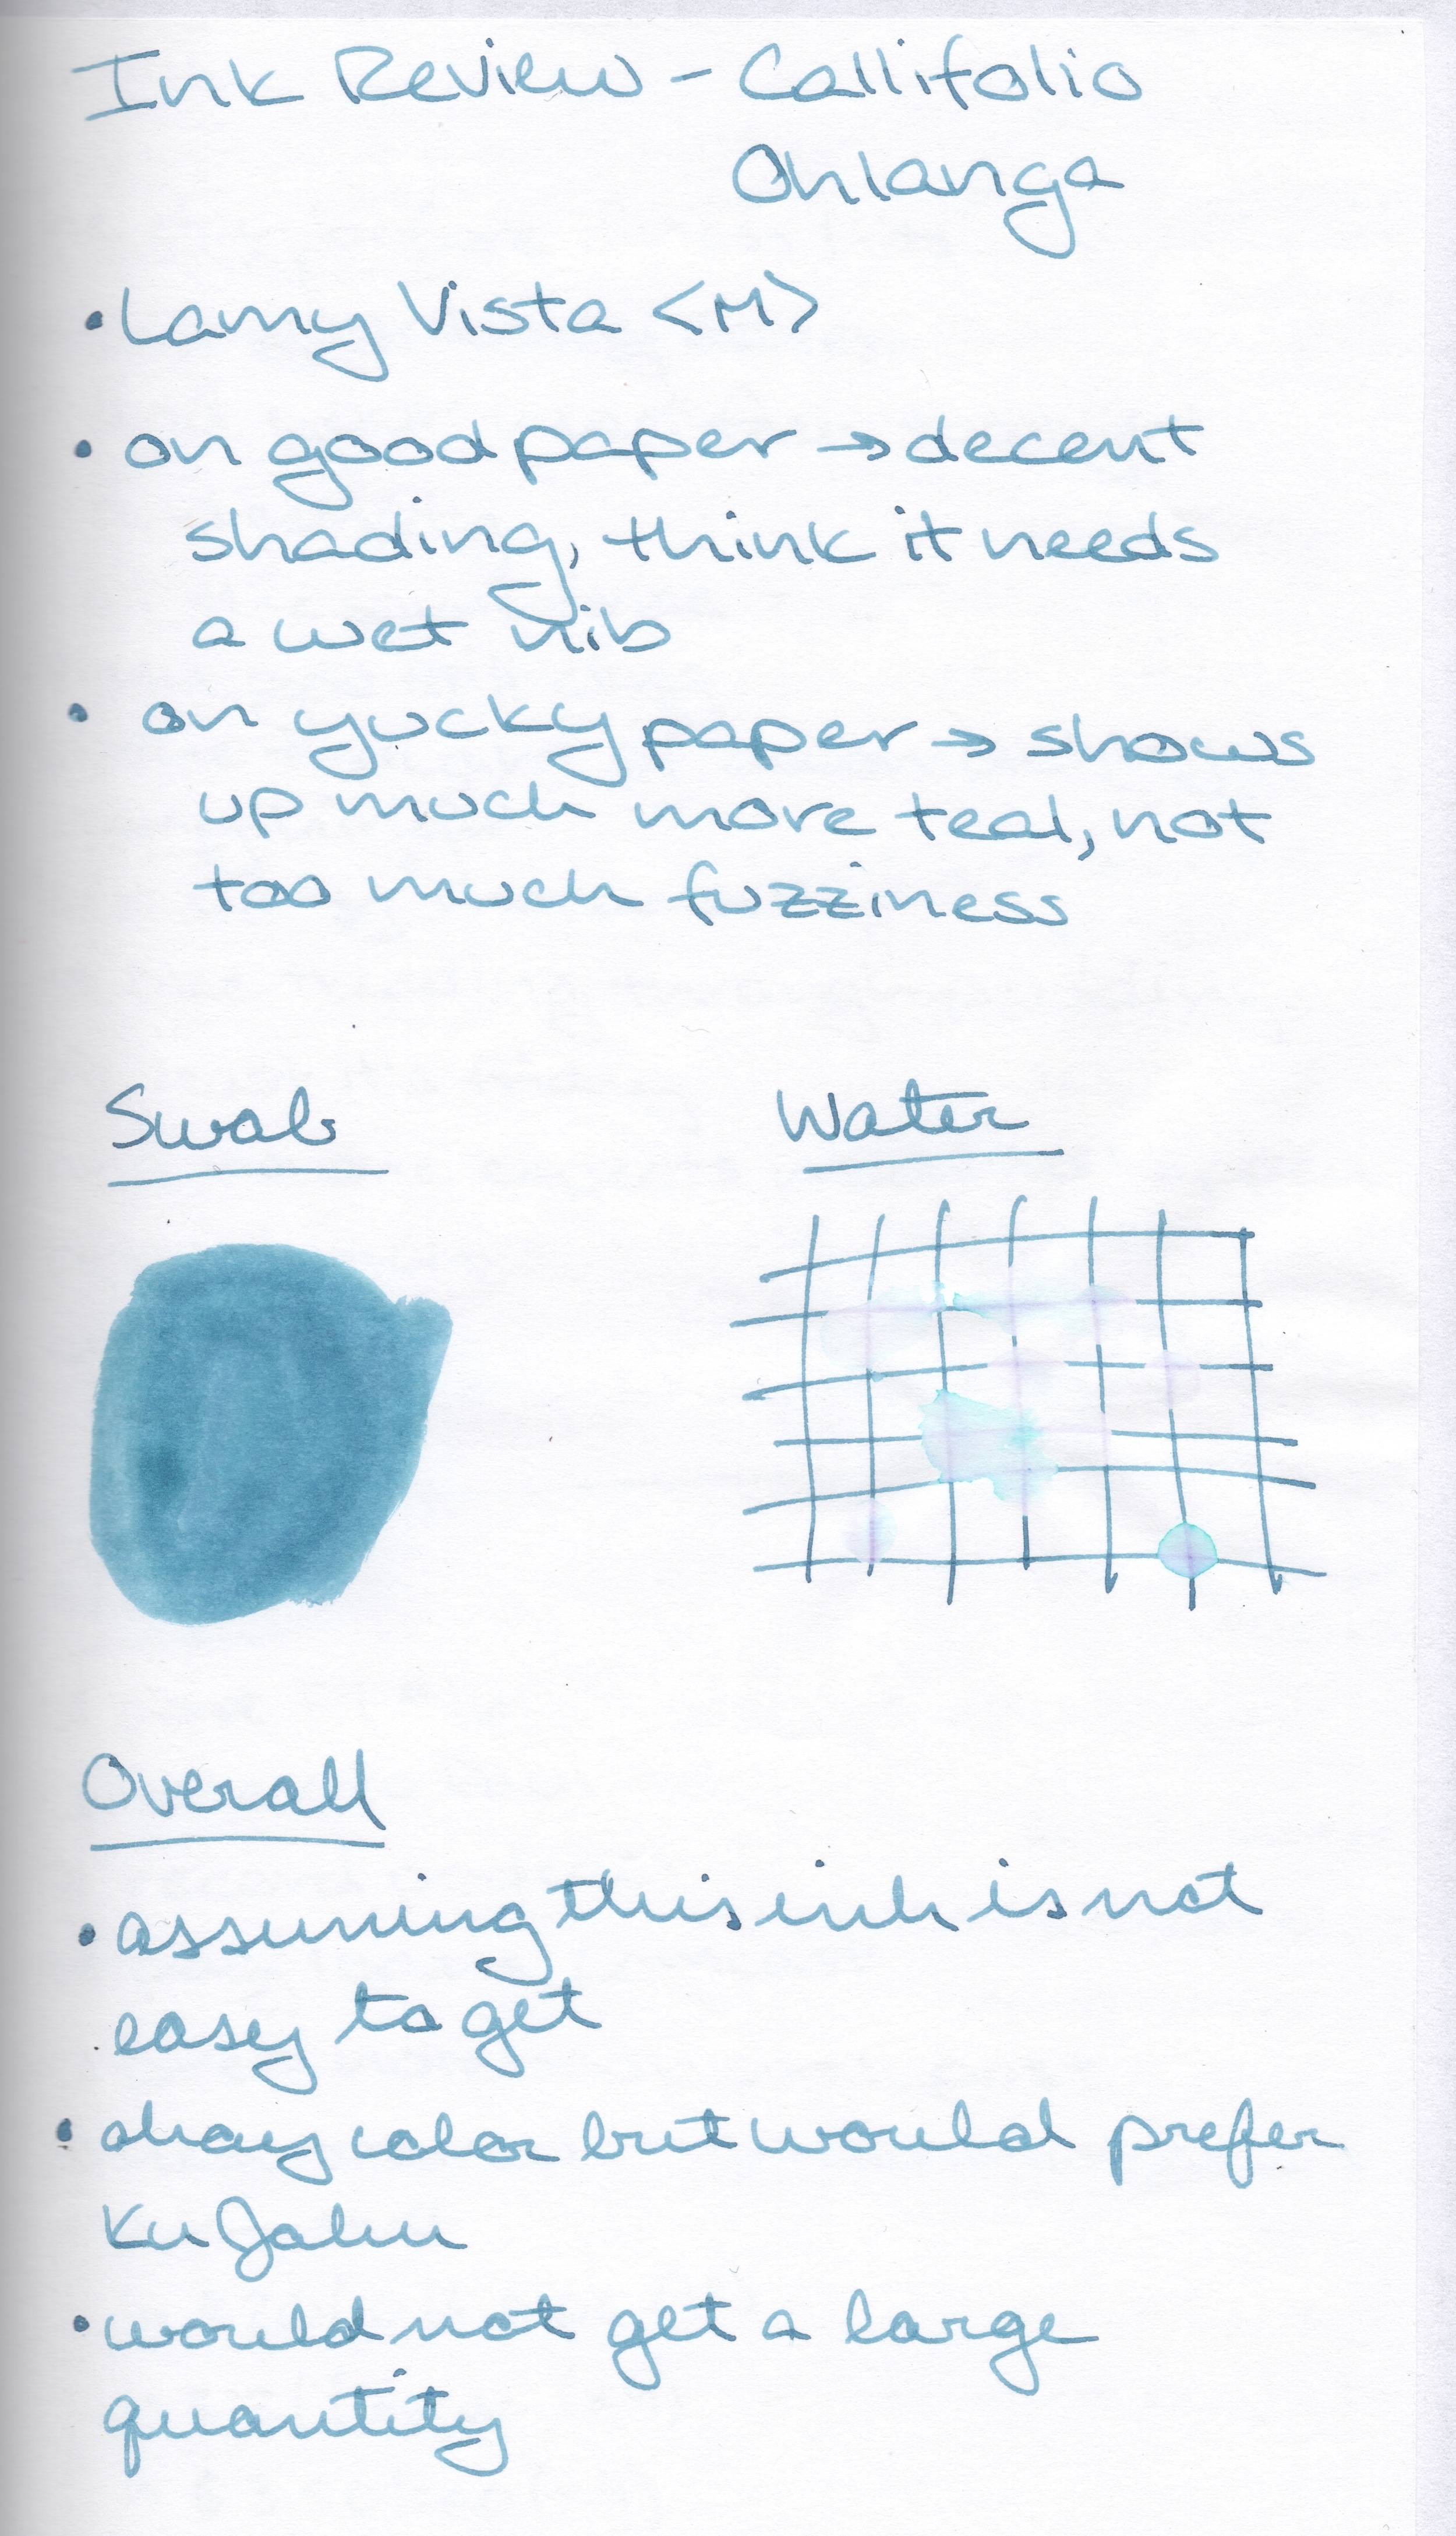 Ink Review - Callifolio
Ohlanga
• Lamy Vista <M>
• on good paper → decent
shading, think it needs
a wet nib
• on yucky paper → shows
up much more teal, not
too much fuzziness
Swab
Water
Overall
• assuming this ink is not
easy to get
• okay color but would prefer
Ku Jaku
• would not get a large
quantity